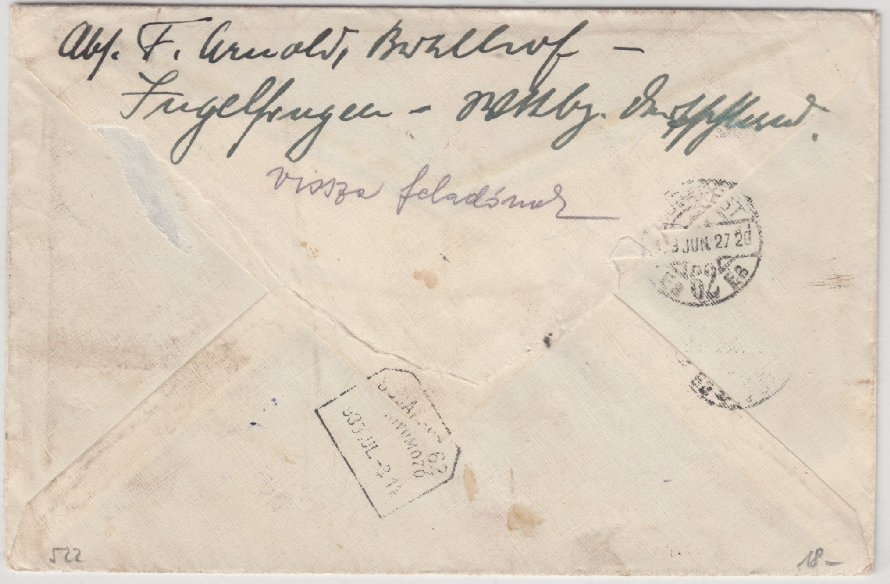 Abs. F. Arnold, Bühlhof –
Ingelfingen – Wttbg. Deutschland.
vissza feladónak
JUN. 27 20
EB 70 EB
62
933 JUL -3.14
522
18 –